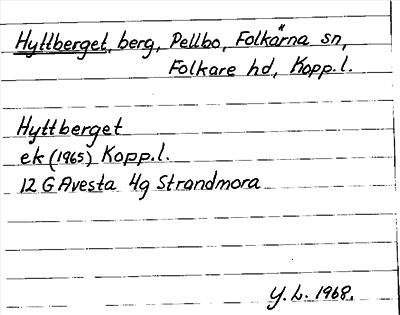 Hyttberget, berg, Pellbo, Folkärna sn,
Folkare hd, Kopp.l.
Hyttberget
ek (1965) Kopp.l.
12 G Avesta 4g Strandmora
Y.L. 1968.